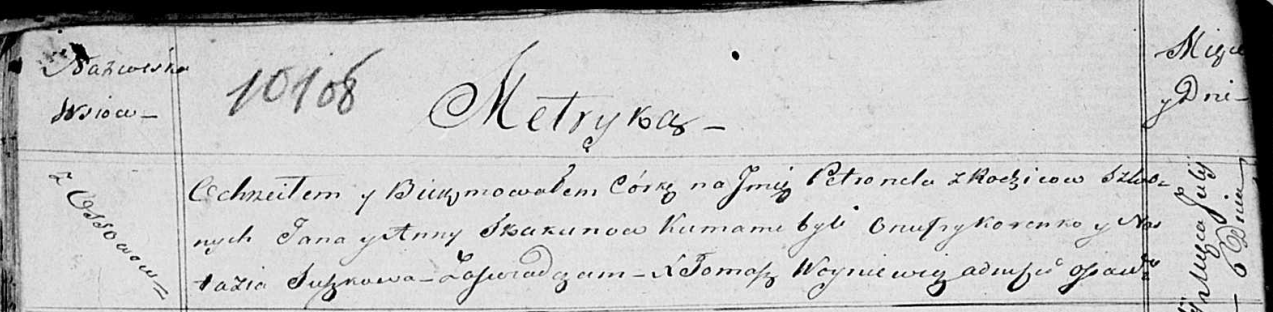 Nazwiska
Wsiow –
10108
Metryka –
Miesiąc
y Dni –
z Ossowow –
Ochrzciłem y Birzmowałem Córkę na Jmię Petronela z Rodzicow Szlu-
nych Jana y Anny Skakunow Kumami byli Onufry Korenko y Nas
tazia Suszkowa – Zaswiadczam – X Tomasz Woyniewicz
Msca Julij
6 Dnia